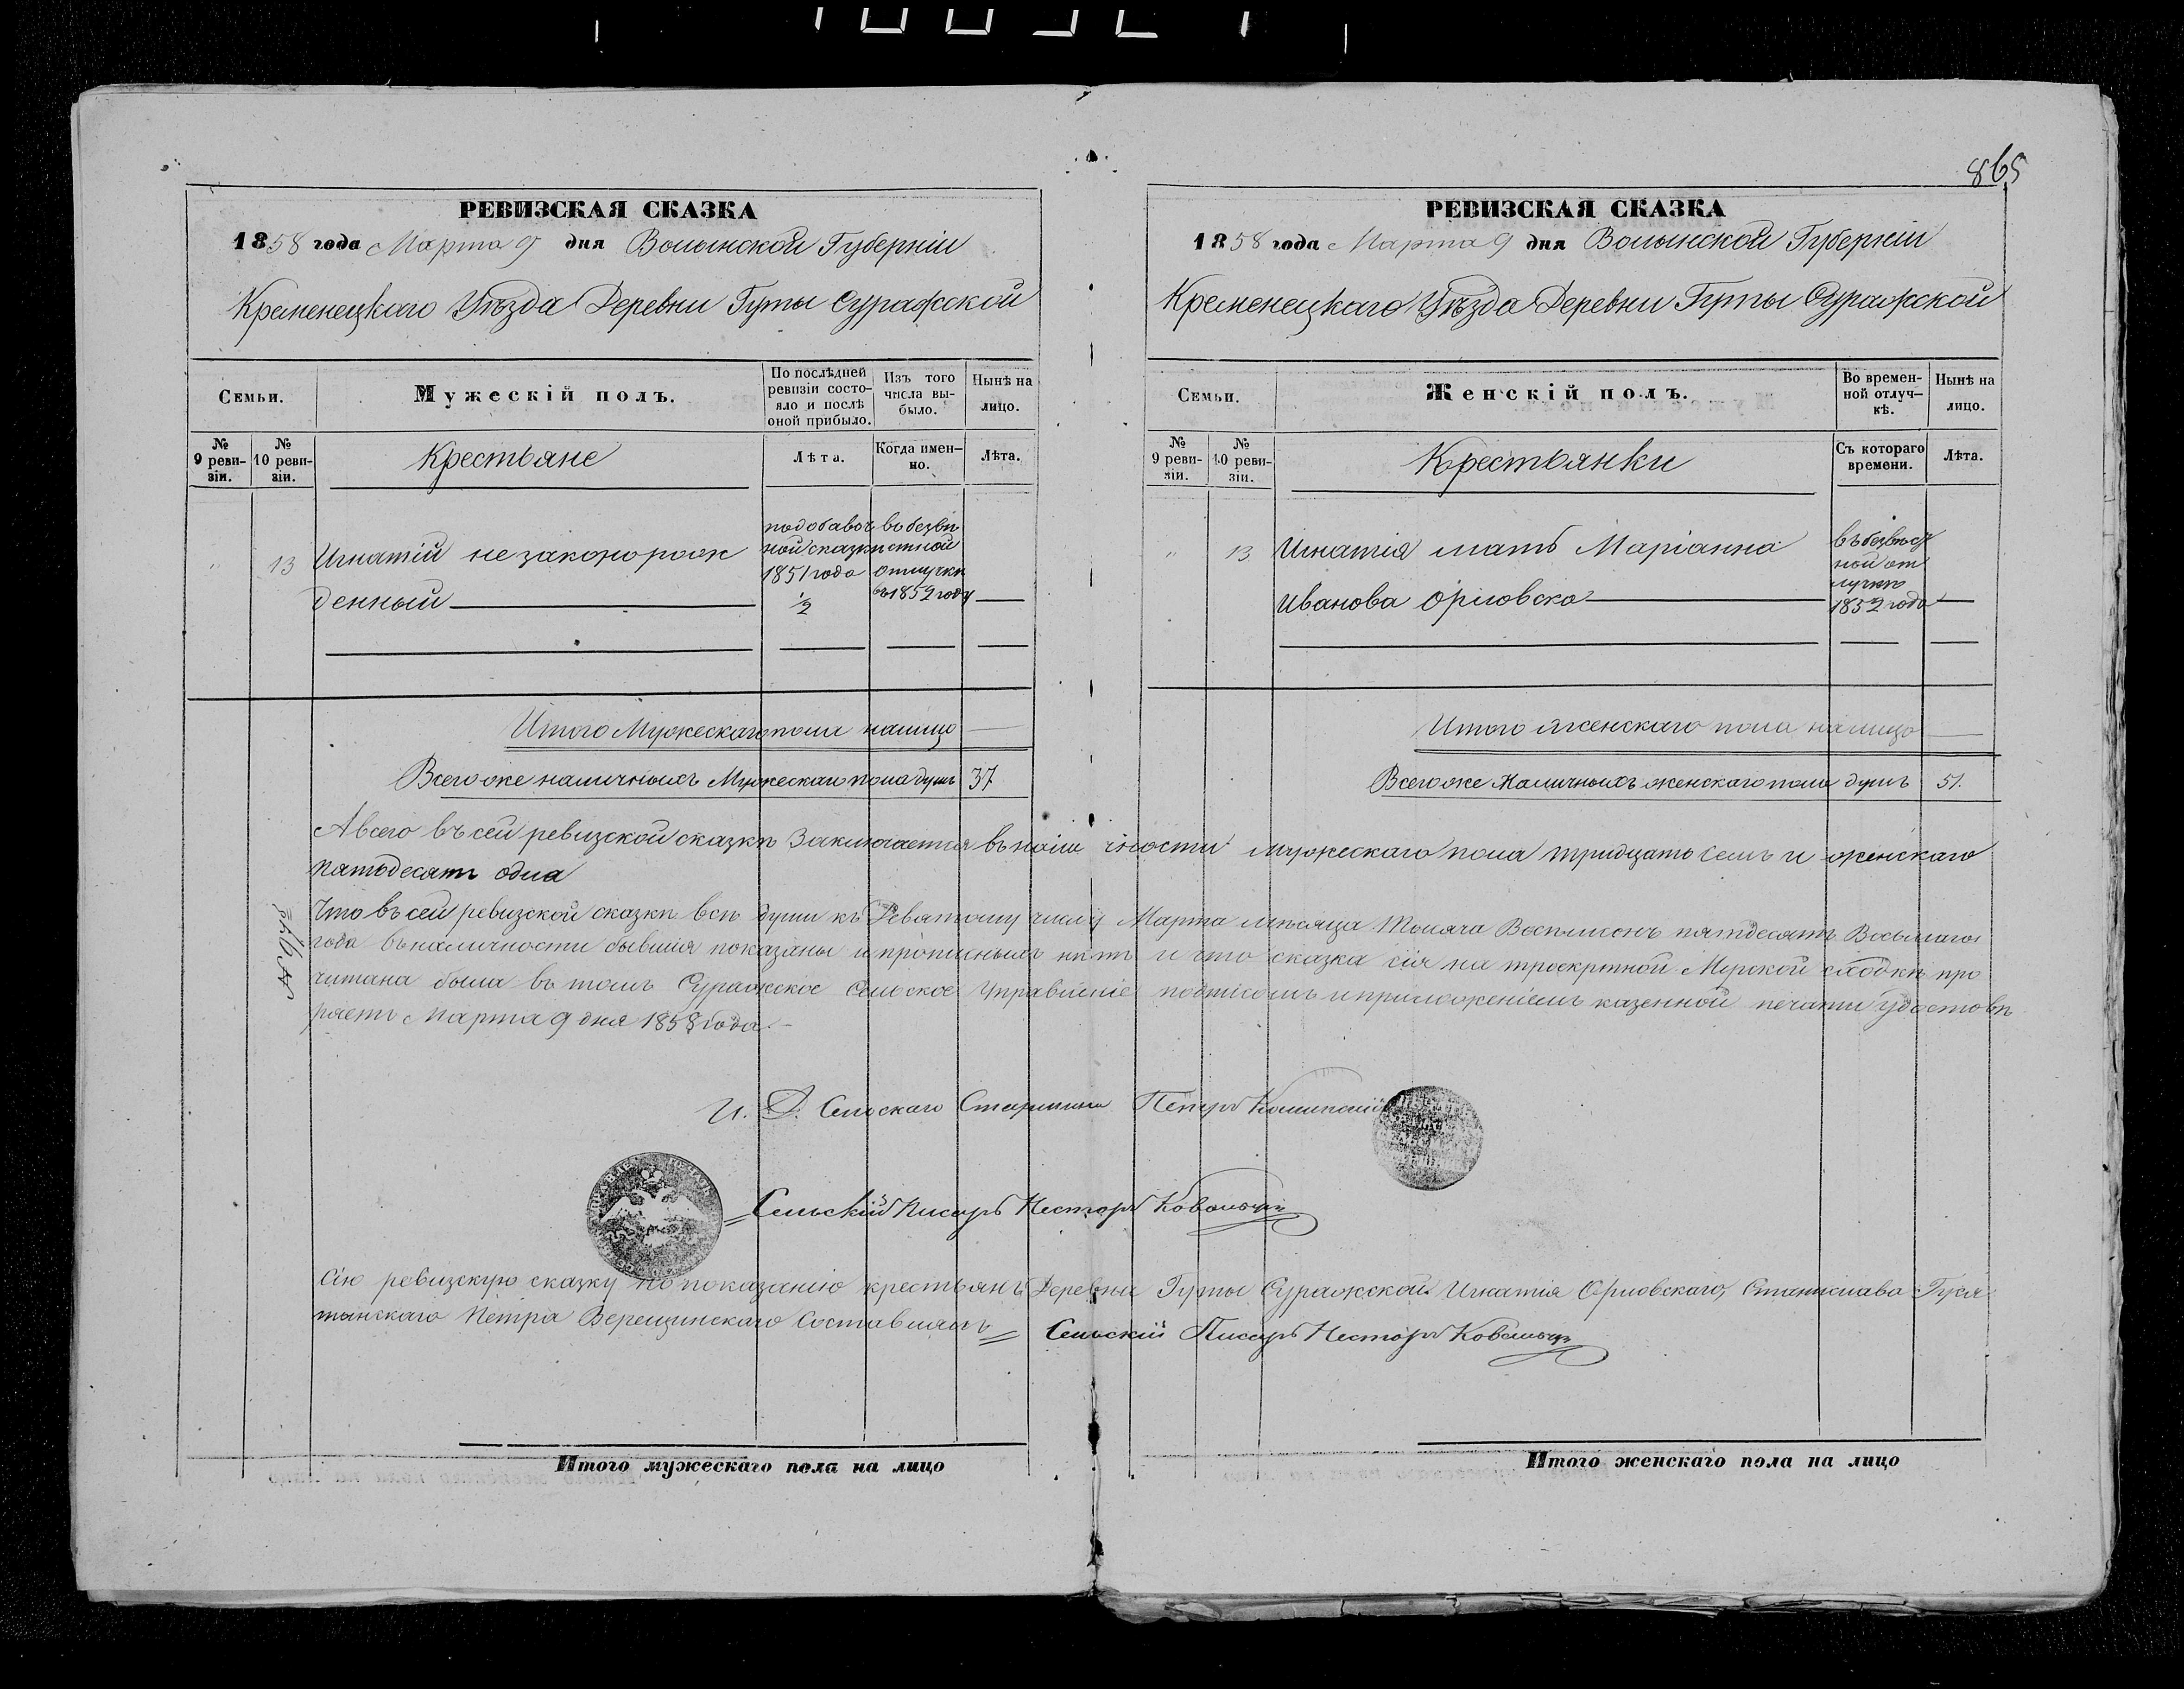 865
РЕВИЗСКАЯ СКАЗКА
1858 года Марта 9 дня Волынской Губерніи
Кременецкаго Уѣзда Деревни Гуты Суражской
Семьи.
Мужескій полъ.
По послѣдней ревизіи состо-
яло и послѣ оной прибыло.
Изъ того числа вы-
было.
Нынѣ на лицо.
№ 9 реви-
зіи.
№ 10 реви-
зіи.
Крестьяне
Лѣта.
Когда имен-
но.
Лѣта.
" 13 Игнатій незаконорож
денный
по добавоч
ной сказки
1851 года
1/2
въ безвѣ
стной
отлучки
въ 1852 году
Итого Мужескаго пола налицо
Всего же наличныхъ Мужескаго пола душъ 37
РЕВИЗСКАЯ СКАЗКА
1858 года Марта 9 дня Волынской Губерніи
Кременецкаго Уѣзда Деревни Гуты Суражской
Семьи.
Женскій полъ.
Во времен-
ной отлуч-
кѣ.
Нынѣ на лицо.
№ 9 реви-
зіи.
№ 10 реви-
зіи.
Крестьянки
Съ котораго времени.
Лѣта.
" 13 Игнатія мать Маріанна
Иванова Орловска
въ безвѣст
ной от
лучкѣ
1852 года
Итого женскаго пола налицо
Всего же Наличныхъ женскаго пола душъ 51.
А всего въ сей ревизской сказкѣ Заключается въ наличности мужескаго пола тридцать семь и женскаго
пятьдесятъ одна
Что въ сей ревизской сказкѣ всѣ души къ Девятому числу Марта мѣсяца Тысяча Восемсотъ пятдесятъ Восьмаго
года въ наличности бывшія показаны и прописныхъ нѣтъ и что сказка сія на троекртной Мирской сходкѣ про
читана была въ томъ Суражское Сельское Управленіе подписомъ и приложеніемъ казенной печати удостовѣ
ряетъ Марта 9 дня 1858 года.
И. Д. Сельскаго Старшины Петръ
Сельскій Писарь Несторъ Ковальчукъ
Сію ревизскую сказку по показанію крестьянъ Деревни Гуты Суражской Игнатія Орловскаго, Станислава
тынскаго Петра Верещинскаго Составлялъ
Сельскій Писарь Несторъ Ковальчукъ
Итого мужескаго пола на лицо
Итого женскаго пола на лицо